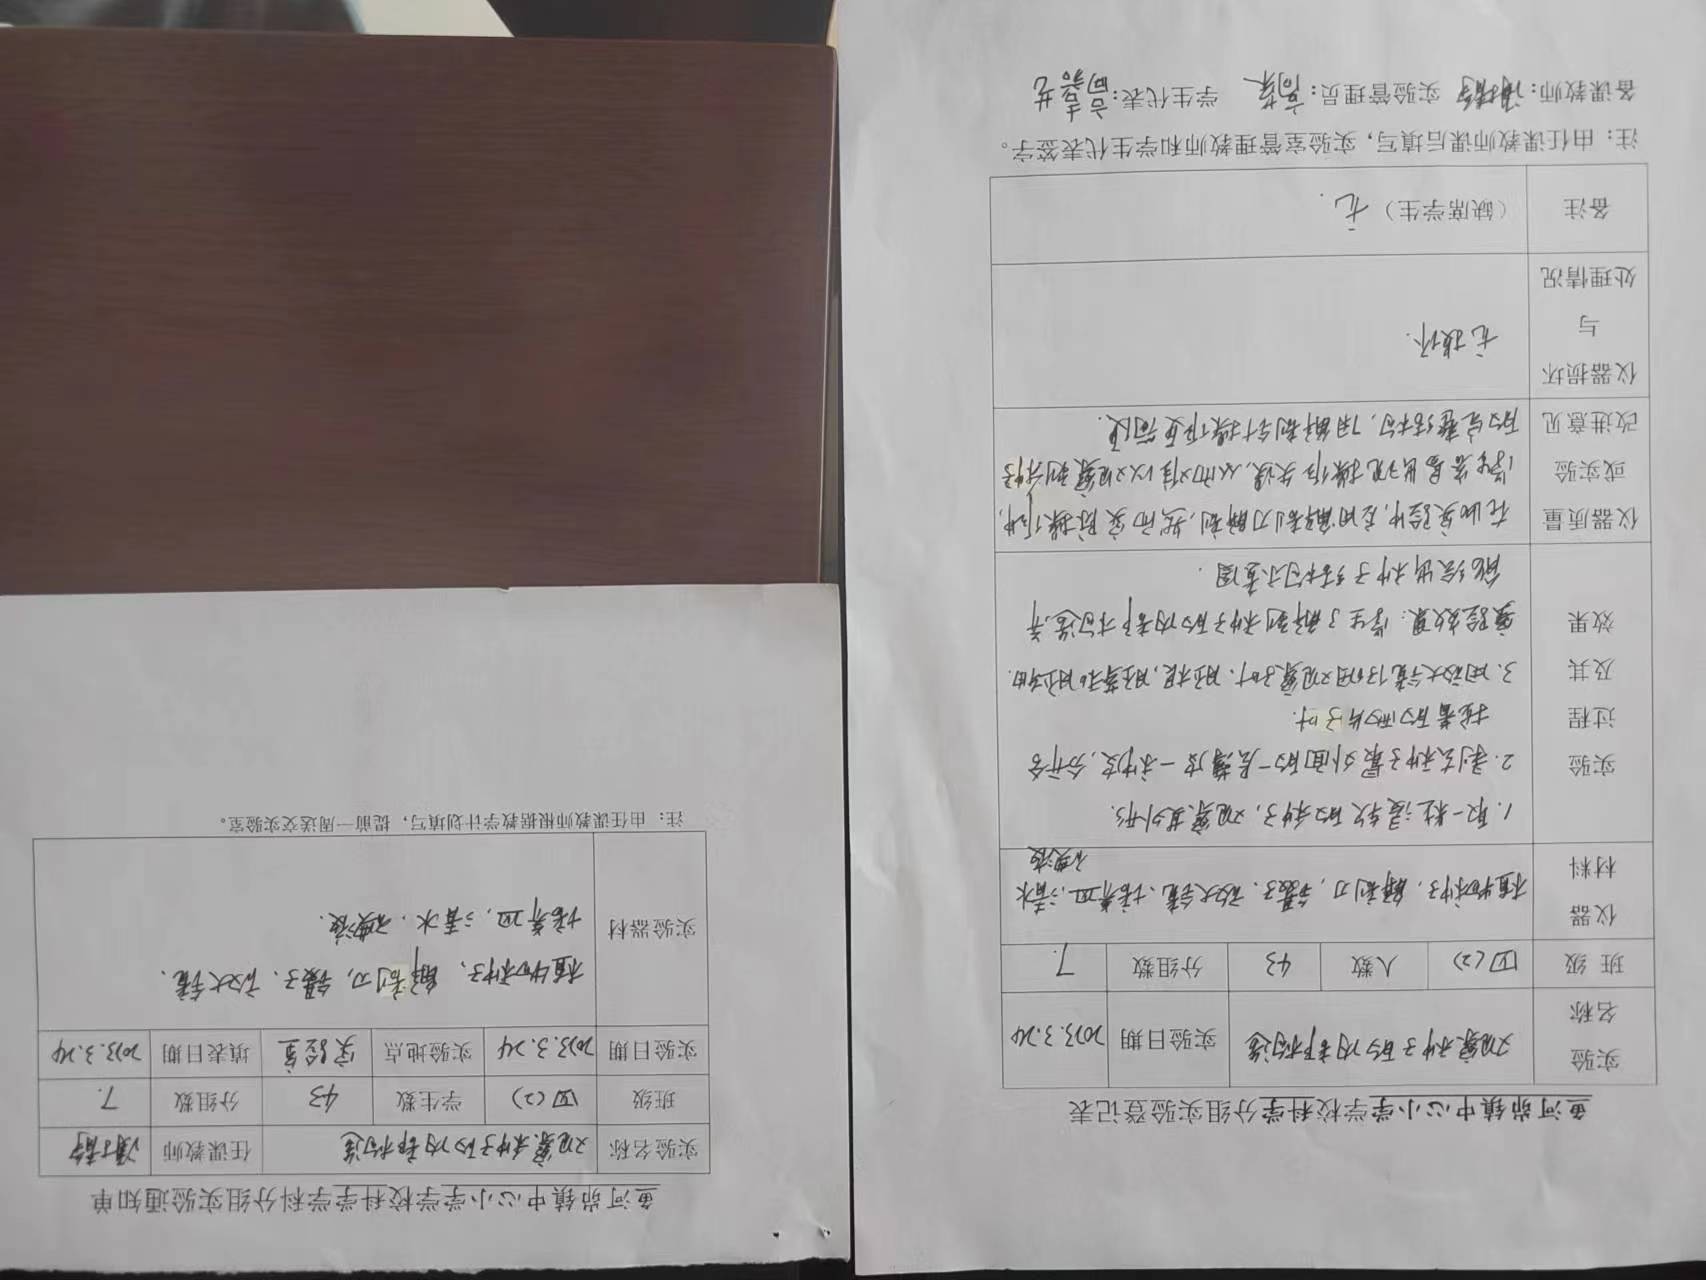 鱼河峁镇中心小学学校科学学科分组实验通知单
实验名称 观察种子的内部构造 任课教师
班级 四(2) 学生数 43 分组数 7.
实验日期 2023.3.24 实验地点 实验室 填表日期 2023.3.24
实验器材 植物种子、解剖刀、镊子、放大镜、
培养皿、清水、碘液.
注：由任课教师根据教学计划填写，提前一周送交实验室。
鱼河峁镇中心小学学校科学分组实验登记表
实验名称 观察种子的内部构造 实验日期 2023.3.24
班级 四(2) 人数 43 分组数 7.
仪器材料 植物种子、解剖刀、镊子、放大镜、培养皿、清水
碘液
实验过程及其效果 1.取一粒浸软的种子，观察其外形.
2.剥去种子最外面的一层薄皮—种皮，分开合
拢着的两片子叶.
3.用放大镜仔细观察子叶、胚根,胚芽和胚轴.
实验效果：学生了解到种子的内部构造,并
能绘出种子结构示意图.
仪器质量或实验改进意见 在此实验中,应用解剖刀解剖,然而实际操作中,
学生容易出现操作失误,从而难以观察到种子
的完整结构,用解剖针操作更简便.
仪器损坏与处理情况 无损坏.
备注 （缺席学生） 无.
注：由任课教师课后填写，实验室管理教师和学生代表签字。
备课教师： 实验管理员：高荣 学生代表：高嘉艺